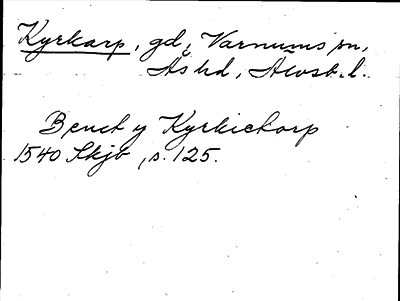 Kyrkarp, gd i Varnums sn,
Ås hd, Älvsb. l.
Benct y Kyrkiekorp
1540 Skjb, s. 125.